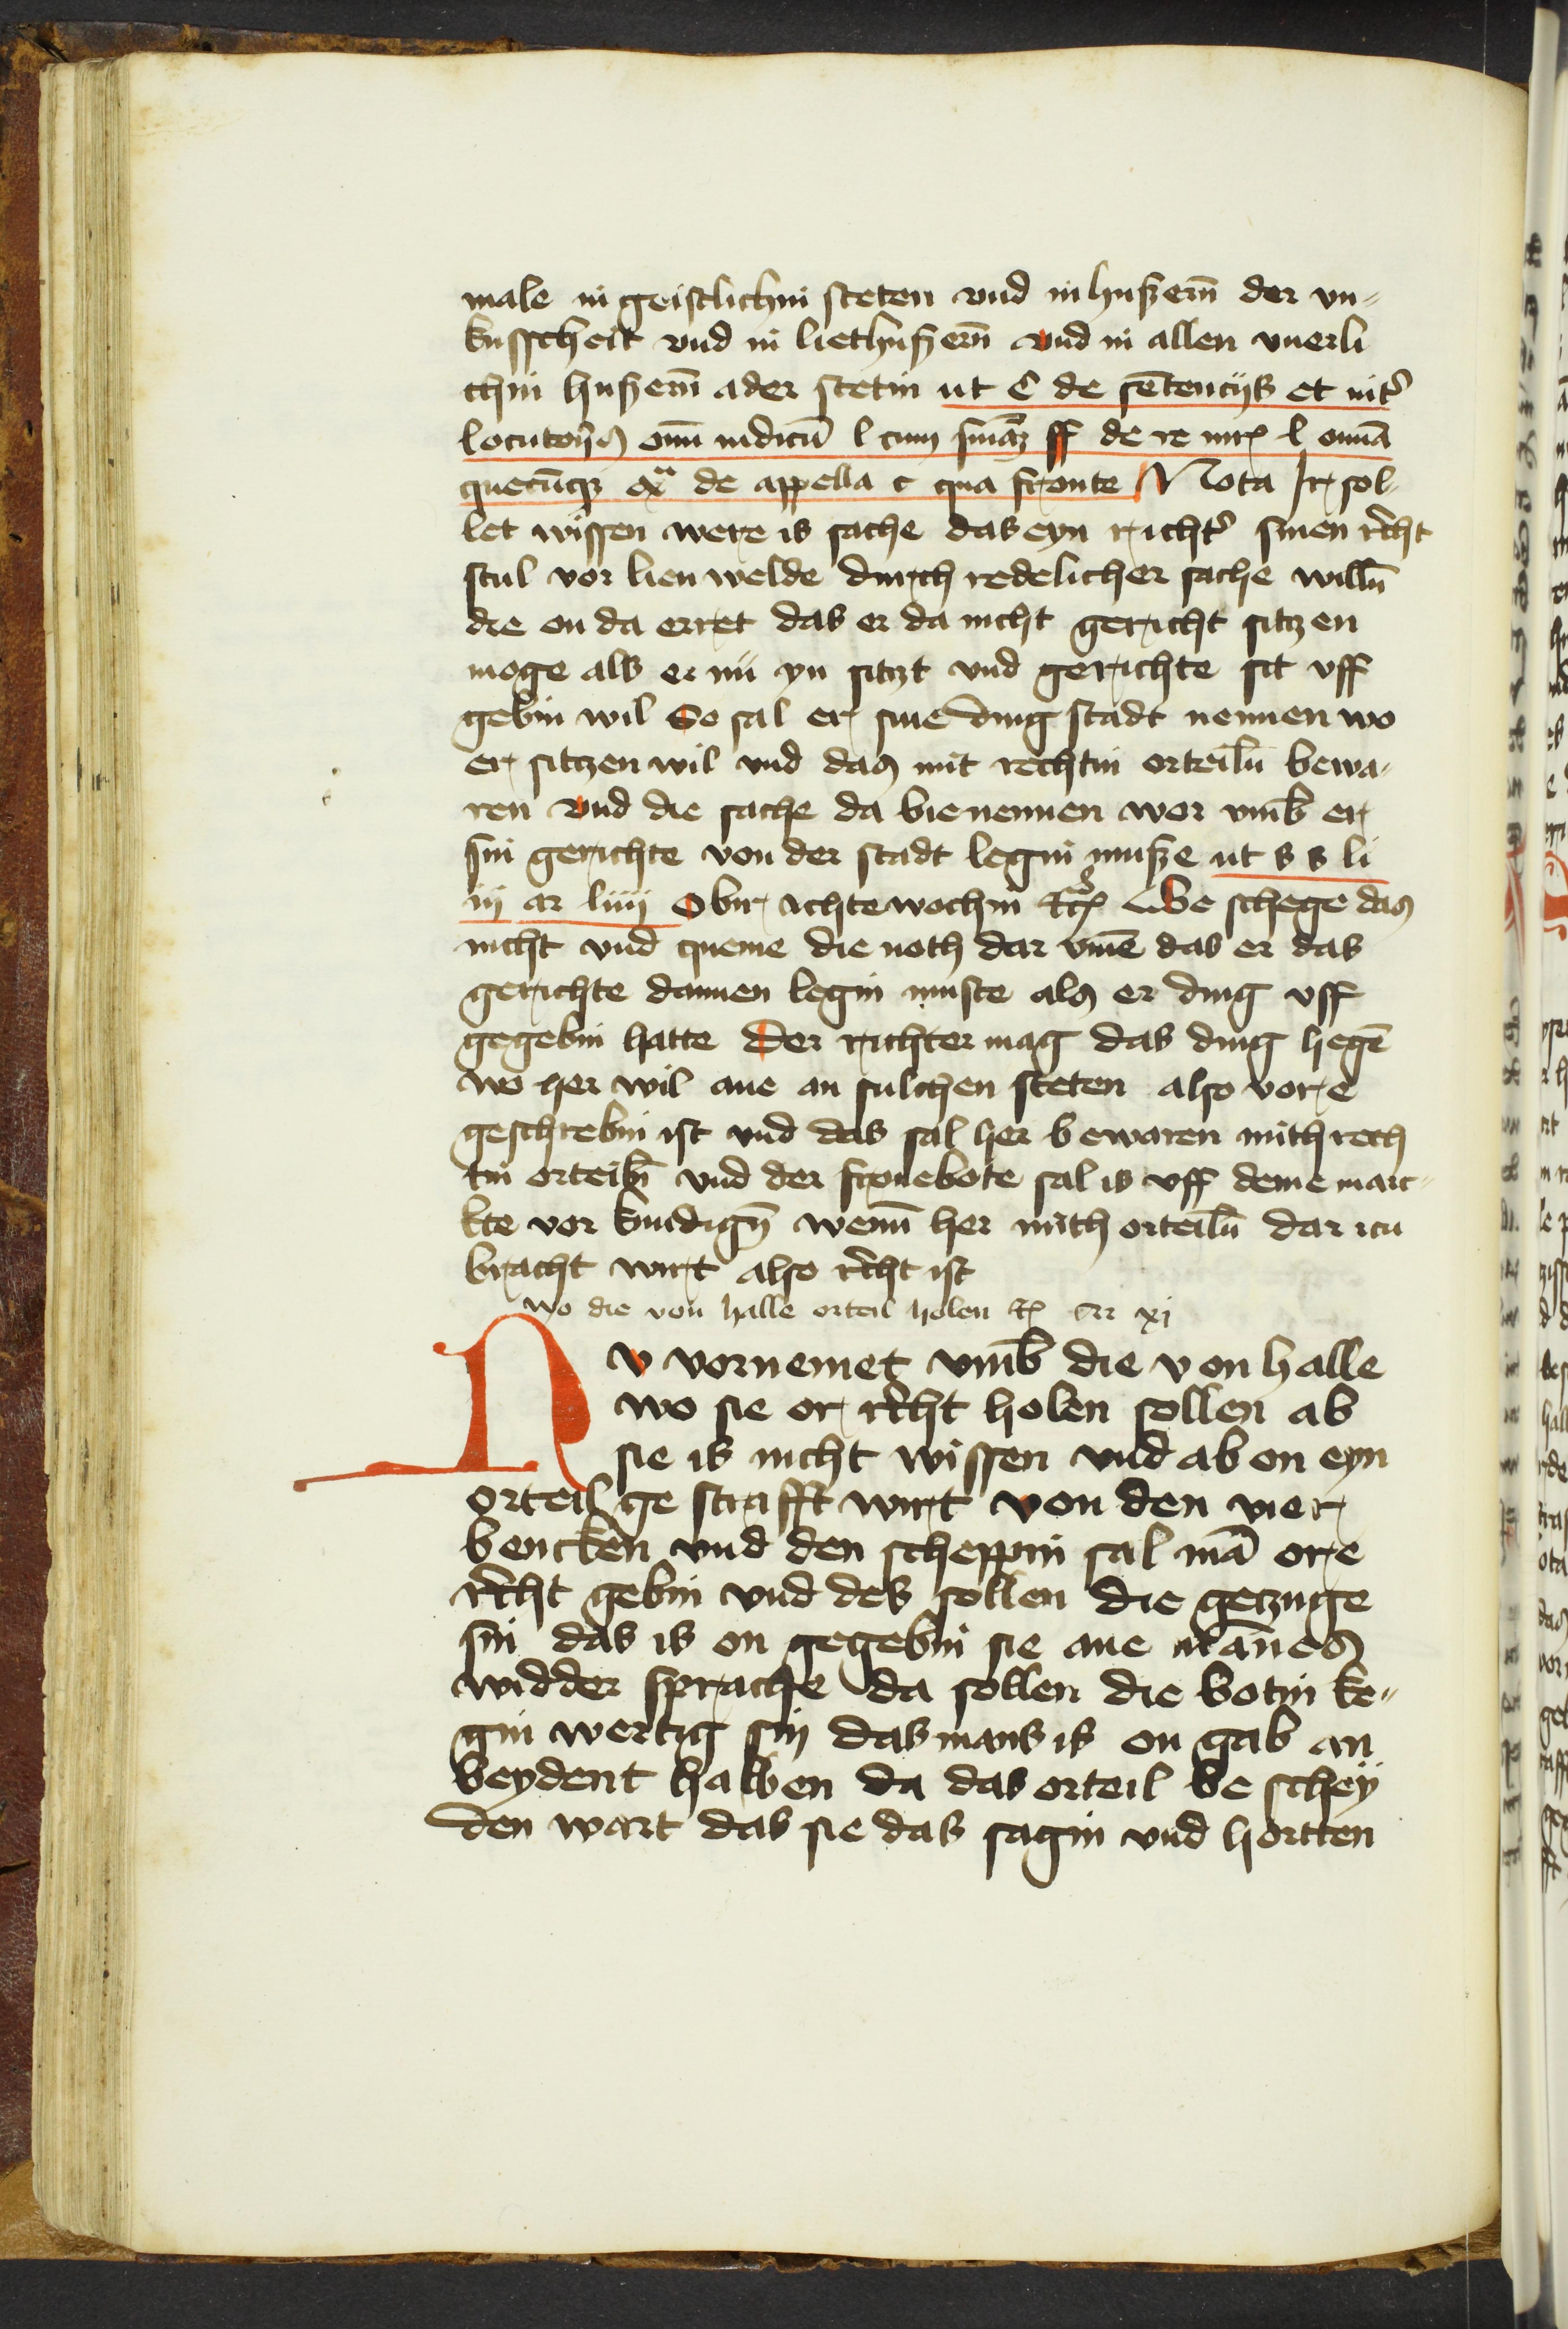 male in geistlichin steten vnd in hußern̄ der vn-
kusscheit vnd in liethußern̄ vnd in allen vnerli
chin hußern̄ ader stetin ut C de sētencijs et int̓
locuto͛ijs om̄ iudicū l cum s̄niaꝫ ff de re iuŗ l om̄ia
quecūqꝫ exͣ de appella c qua fronte Nota Ir sol-
let wissen were is sache das eyn richt̓ sinen r̄cht
stul vor lien welde durch redelicher sache willn̄
die on da erret das er da nicht gericht sitzen
moge als er nü yn sitzt vnd gerichte sit vff
gebin wil So sal er sine ding stadt nennen wo
er sitzen wil vnd das mit rechtin orteiln̄ bewa-
ren vnd die sache da bie nennen wor vmb̄ er
sin gerichte von der stadt legin muße ut s s li
iij ar liiij Obir achte wochin etc̄ Be schege das
nicht vnd queme die noth dar vmē das er das
gerichte dannen legin muste als er ding vff
gegebin hatte Der richter mag das ding hegē
wo her wil ane an sulchen steten also vore
geschrebin ist vnd das sal her bewaren mith rech
tin orteiln̄ vnd der fronebote sal is vff deme marc-
kte vor kundign̄ wenn̄ her mith orteiln̄ dar zcu
bracht wirt also r̄cht ist
wo die von halle orteil holen etc̄ Ar xj
Nv vornemet vmb̄ die von halle
wo sie or r̄cht holen sollen ab
sie is nicht wissen vnd ab on eyn
orteil ge strafft wirt von den vier
bencken vnd den scheppin sal mā ore
r̄cht gebin vnd des sollen die getzuge
sin das is on gegebin sie ane mānes
widder sprache da sollen die botin ke-
gin wertig sin das mans is on gab an
beydent halben da das orteil be schey
den wart das sie das sagin vnd hortten